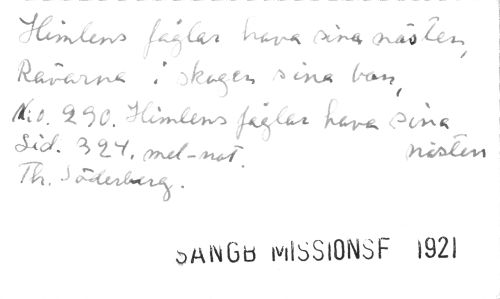 Himlens fåglar hava sina nästen,
Rävarna i skogen sina bon,
No. 290. Himlens fåglar hava sina
Sid. 324. mel-not. nästen
Th. Söderberg.
SÅNGB MISSIONSF 1921